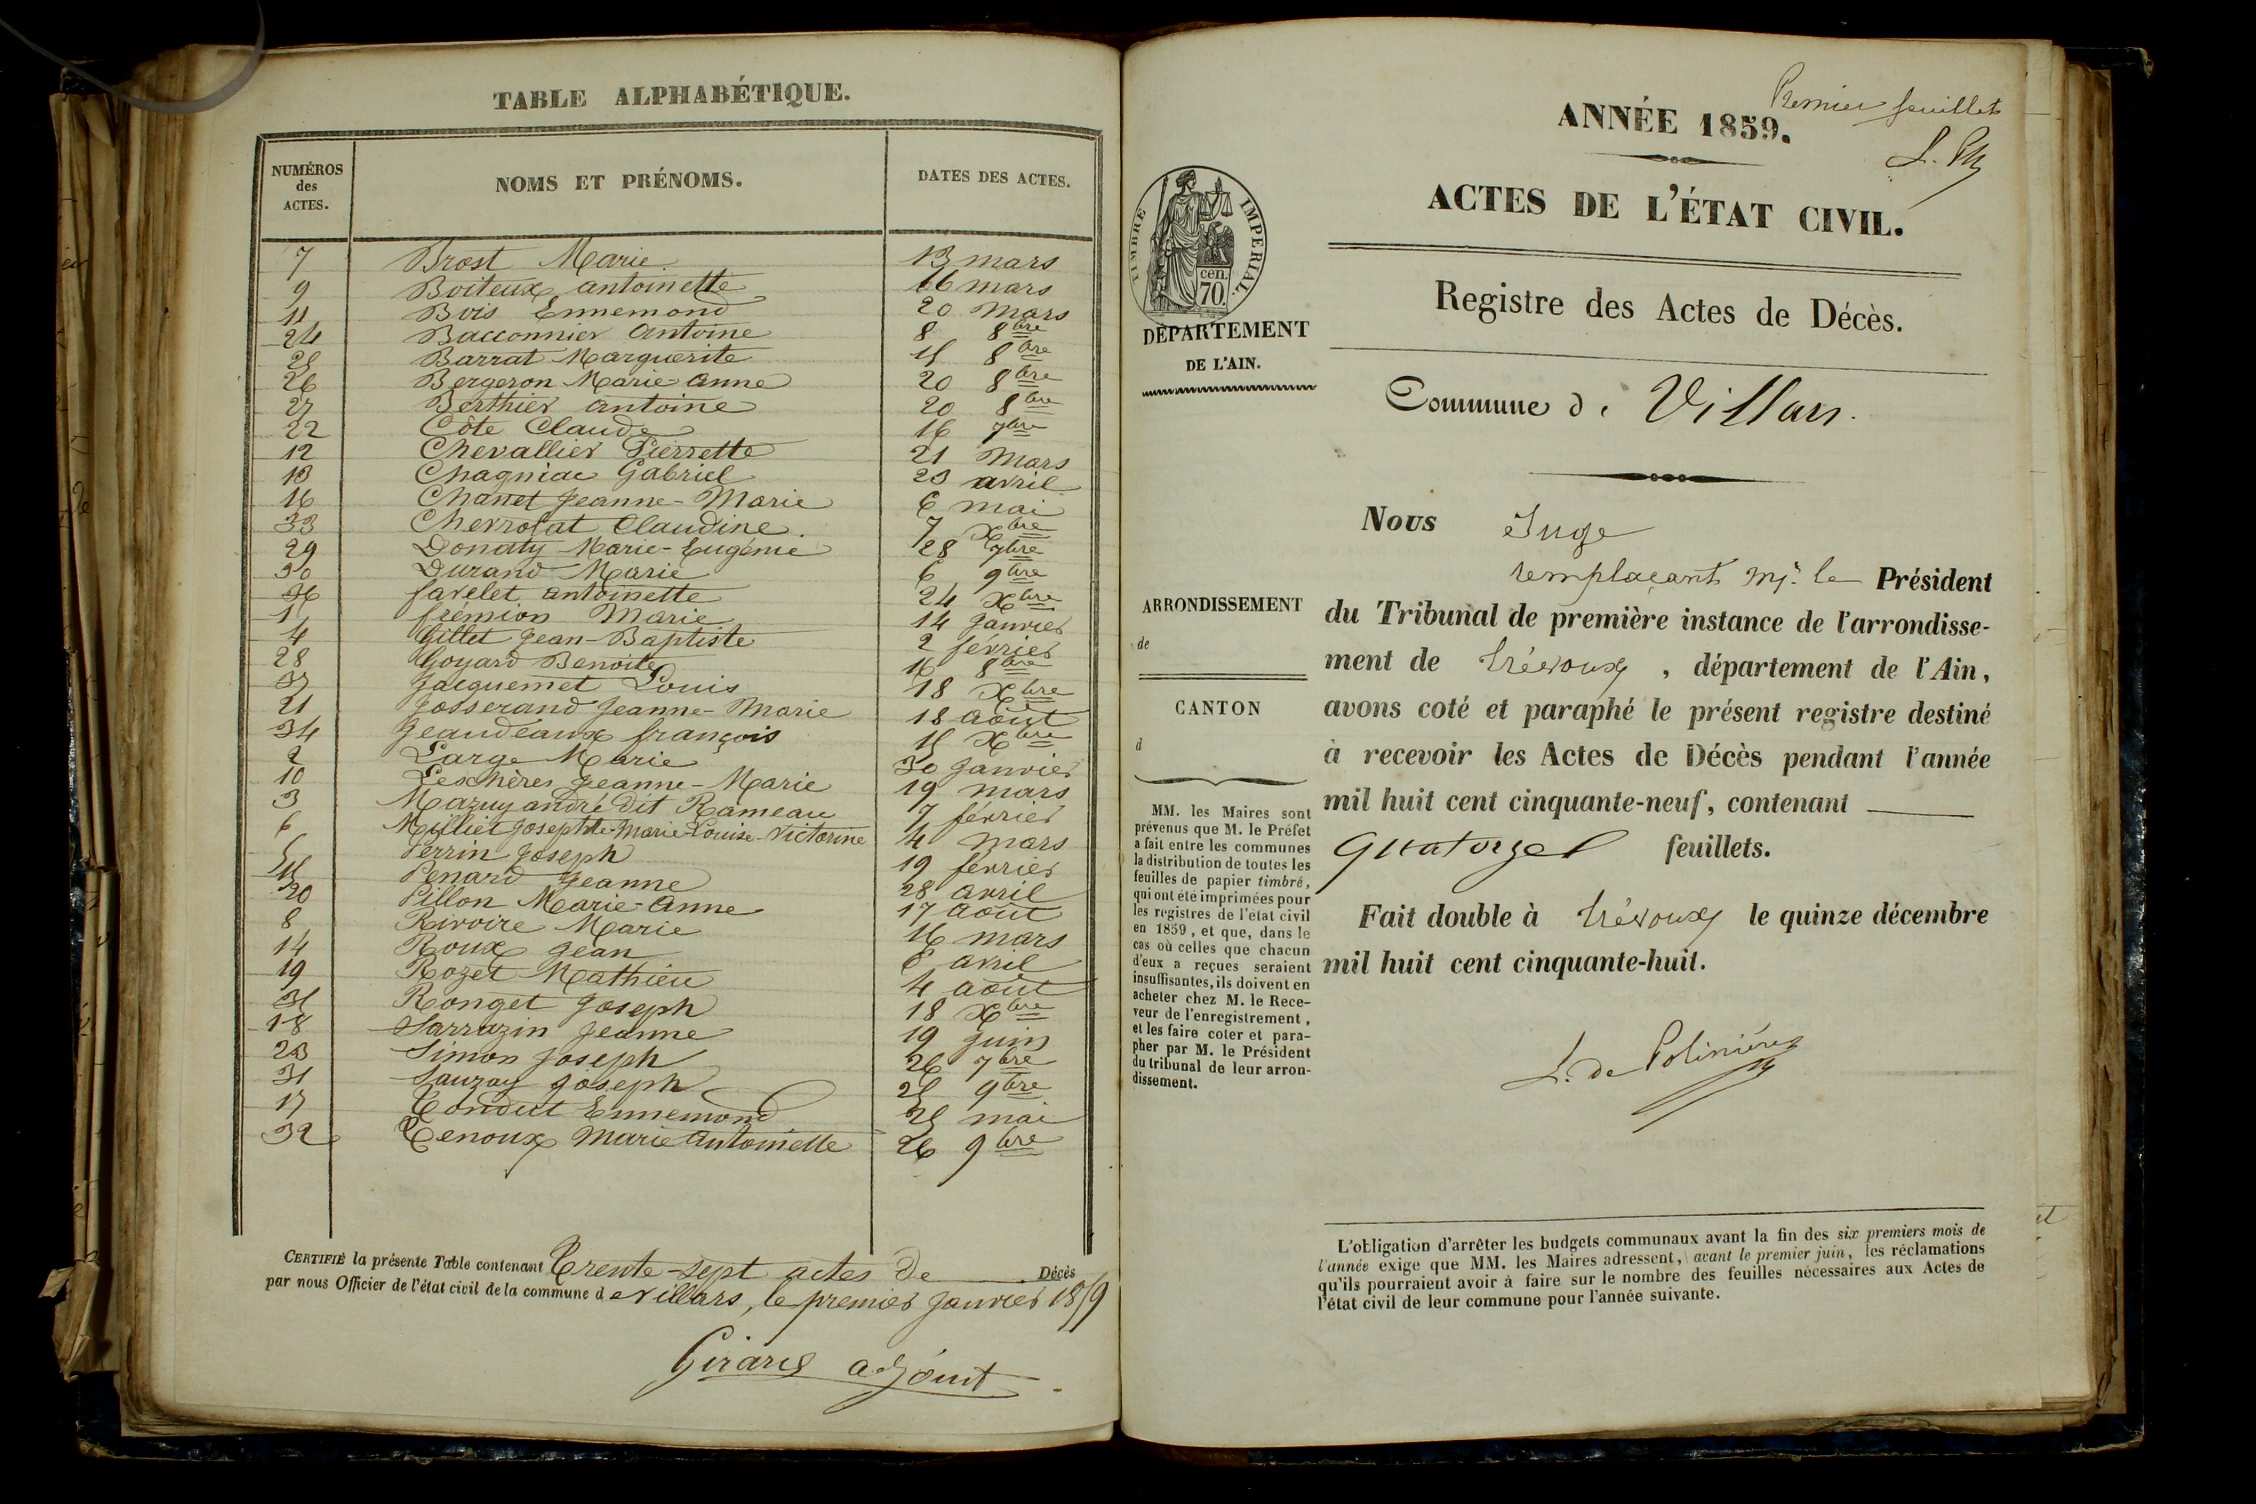 TABLE ALPHABÉTIQUE.
NUMÉROS des ACTES.
NOMS ET PRÉNOMS.
DATES DES ACTES.
7 Brost Marie 13 mars
9 Boiteux antoinette 16 mars
11 Bois Ennemond 20 Mars
24 Bacconnier Antoine 8 8bre
25 Barrat Marguerite 15 8bre
26 Bergeron Marie anne 20 8bre
27 Berthier antoine 20 8bre
22 Côte Claude 16 7bre
12 Chevallier Pierrette 21 Mars
13 Chagniac Gabriel 23 avril
16 Chanet Jeanne-Marie 6 mai
33 Cherrofat Claudine 7 Xbre
29 Donaty Marie-Eugénie 28 7bre
30 Durand Marie 6 9bre
36 favelet antoinette 24 Xbre
1 frémion Marie 14 Janvier
4 Gillet Jean-Baptiste 2 février
28 Goyard Benoite 16 8bre
37 Jacquemet Louis 18 Xbre
21 Josserand Jeanne-Marie 18 août
34 Jeandeaux françois 15 Xbre
2 Large Marie 30 Janvier
10 Leschères Jeanne-Marie 19 mars
3 Mazuy andré dit Rameau 7 février
6 Millier Josephte-Marie-Louise-Victorine 4 mars
5 Perrin Joseph 19 février
15 Penard Jeanne 28 avril
20 Pillon Marie-Anne 17 août
8 Rivoire Marie 16 mars
14 Roux Jean 6 avril
19 Rozet Mathieu 4 août
35 Ronget Joseph 18 Xbre
18 Sarrazin Jeanne 19 juin
23 Simon Joseph 26 7bre
31 Sauzay Joseph 25 9bre
17 Condut Ennemond 25 mai
32 Tenoux Marie Antoinette 26 9bre
CERTIFIÉ la présente Table contenant Trente-sept actes de Décès
par nous Officier de l'état civil de la commune d e Villars, le premier Janvier 1859
Girard adjoint
Premier feuillet
ANNÉE 1859.
ACTES DE L'ÉTAT CIVIL.
TIMBRE IMPERIAL.
cen.
70.
DÉPARTEMENT
DE L'AIN.
Registre des Actes de Décès.
Commune de Villars.
Nous Juge
remplaçant Mr. le Président
du Tribunal de première instance de l'arrondisse-
ment de Trévoux, département de l'Ain,
avons coté et paraphé le présent registre destiné
à recevoir les Actes de Décès pendant l'année
mil huit cent cinquante-neuf, contenant
quatorze feuillets.
Fait double à Trévoux le quinze décembre
mil huit cent cinquante-huit.
L. de Polinière
ARRONDISSEMENT
de
CANTON
d
MM. les Maires sont
prévenus que M. le Préfet
a fait entre les communes
la distribution de toutes les
feuilles de papier timbré,
qui ont été imprimées pour
les registres de l'état civil
en 1859, et que, dans le
cas où celles que chacun
d'eux a reçues seraient
insuffisantes, ils doivent en
acheter chez M. le Rece-
veur de l'enregistrement,
et les faire coter et para-
pher par M. le Président
du tribunal de leur arron-
dissement.
L'obligation d'arrêter les budgets communaux avant la fin des six premiers mois de
l'année exige que MM. les Maires adressent, avant le premier juin, les réclamations
qu'ils pourraient avoir à faire sur le nombre des feuilles nécessaires aux Actes de
l'état civil de leur commune pour l'année suivante.